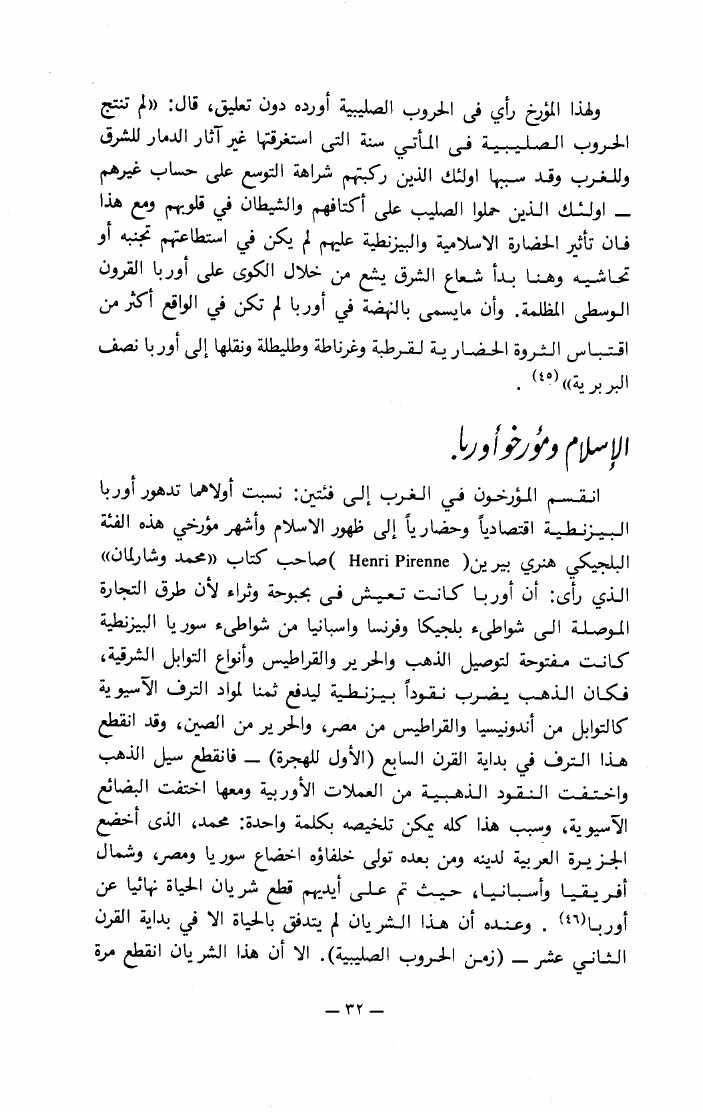 ولهذا المؤرخ رأي فى الحروب الصليبية أورده دون تعليق، قال: «لم تنتج
الحروب الصليبية فى المأتي سنة التى استغرقتها غير آثار الدمار للشرق
وللغرب وقد سببها اولئك الذين ركبتهم شراهة التوسع على حساب غيرهم
— اولئك الذين حملوا الصليب على أكتافهم والشيطان في قلوبهم ومع هذا
فان تأثير الحضارة الاسلامية والبيزنطية عليهم لم يكن في استطاعتهم تجنبه أو
تحاشيه وهنا بدأ شعاع الشرق يشع من خلال الكوى على أوربا القرون
الوسطى المظلمة. وأن مايسمى بالنهضة في أوربا لم تكن في الواقع أكثر من
اقتباس الثروة الحضارية لقرطبة وغرناطة وطليطلة ونقلها إلى أوربا نصف
البربرية»(٤٥) .
الإسلام ومؤرخو أوربا.
انقسم المؤرخون في الغرب إلى فئتين: نسبت أولاهما تدهور أوربا
البيزنطية اقتصادياً وحضارياً إلى ظهور الاسلام وأشهر مؤرخي هذه الفئة
البلجيكي هنري بيرين( Henri Pirenne )صاحب كتاب «محمد وشارلمان»
الذي رأى: أن أوربا كانت تعيش فى بحبوحة وثراء لأن طرق التجارة
الموصلة الى شواطىء بلجيكا وفرنسا واسبانيا من شواطىء سوريا البيزنطية
كانت مفتوحة لتوصيل الذهب والحرير والقراطيس وأنواع التوابل الشرقية،
فكان الذهب يضرب نقوداً بيزنطية ليدفع ثمنا لمواد الترف الآسيوية
كالتوابل من أندونيسيا والقراطيس من مصر، والحرير من الصين، وقد انقطع
هذا الترف في بداية القرن السابع (الأول للهجرة) — فانقطع سيل الذهب
واختفت النقود الذهبية من العملات الأوربية ومعها اختفت البضائع
الآسيوية، وسبب هذا كله يمكن تلخيصه بكلمة واحدة: محمد، الذى أخضع
الجزيرة العربية لدينه ومن بعده تولى خلفاؤه اخضاع سوريا ومصر، وشمال
أفريقيا وأسبانيا، حيث تم على أيديهم قطع شريان الحياة نهائيا عن
أوربا(٤٦) . وعنده أن هذا الشريان لم يتدفق بالحياة الا في بداية القرن
الثاني عشر — (زمن الحروب الصليبية). الا أن هذا الشريان انقطع مرة
— ٣٢ —